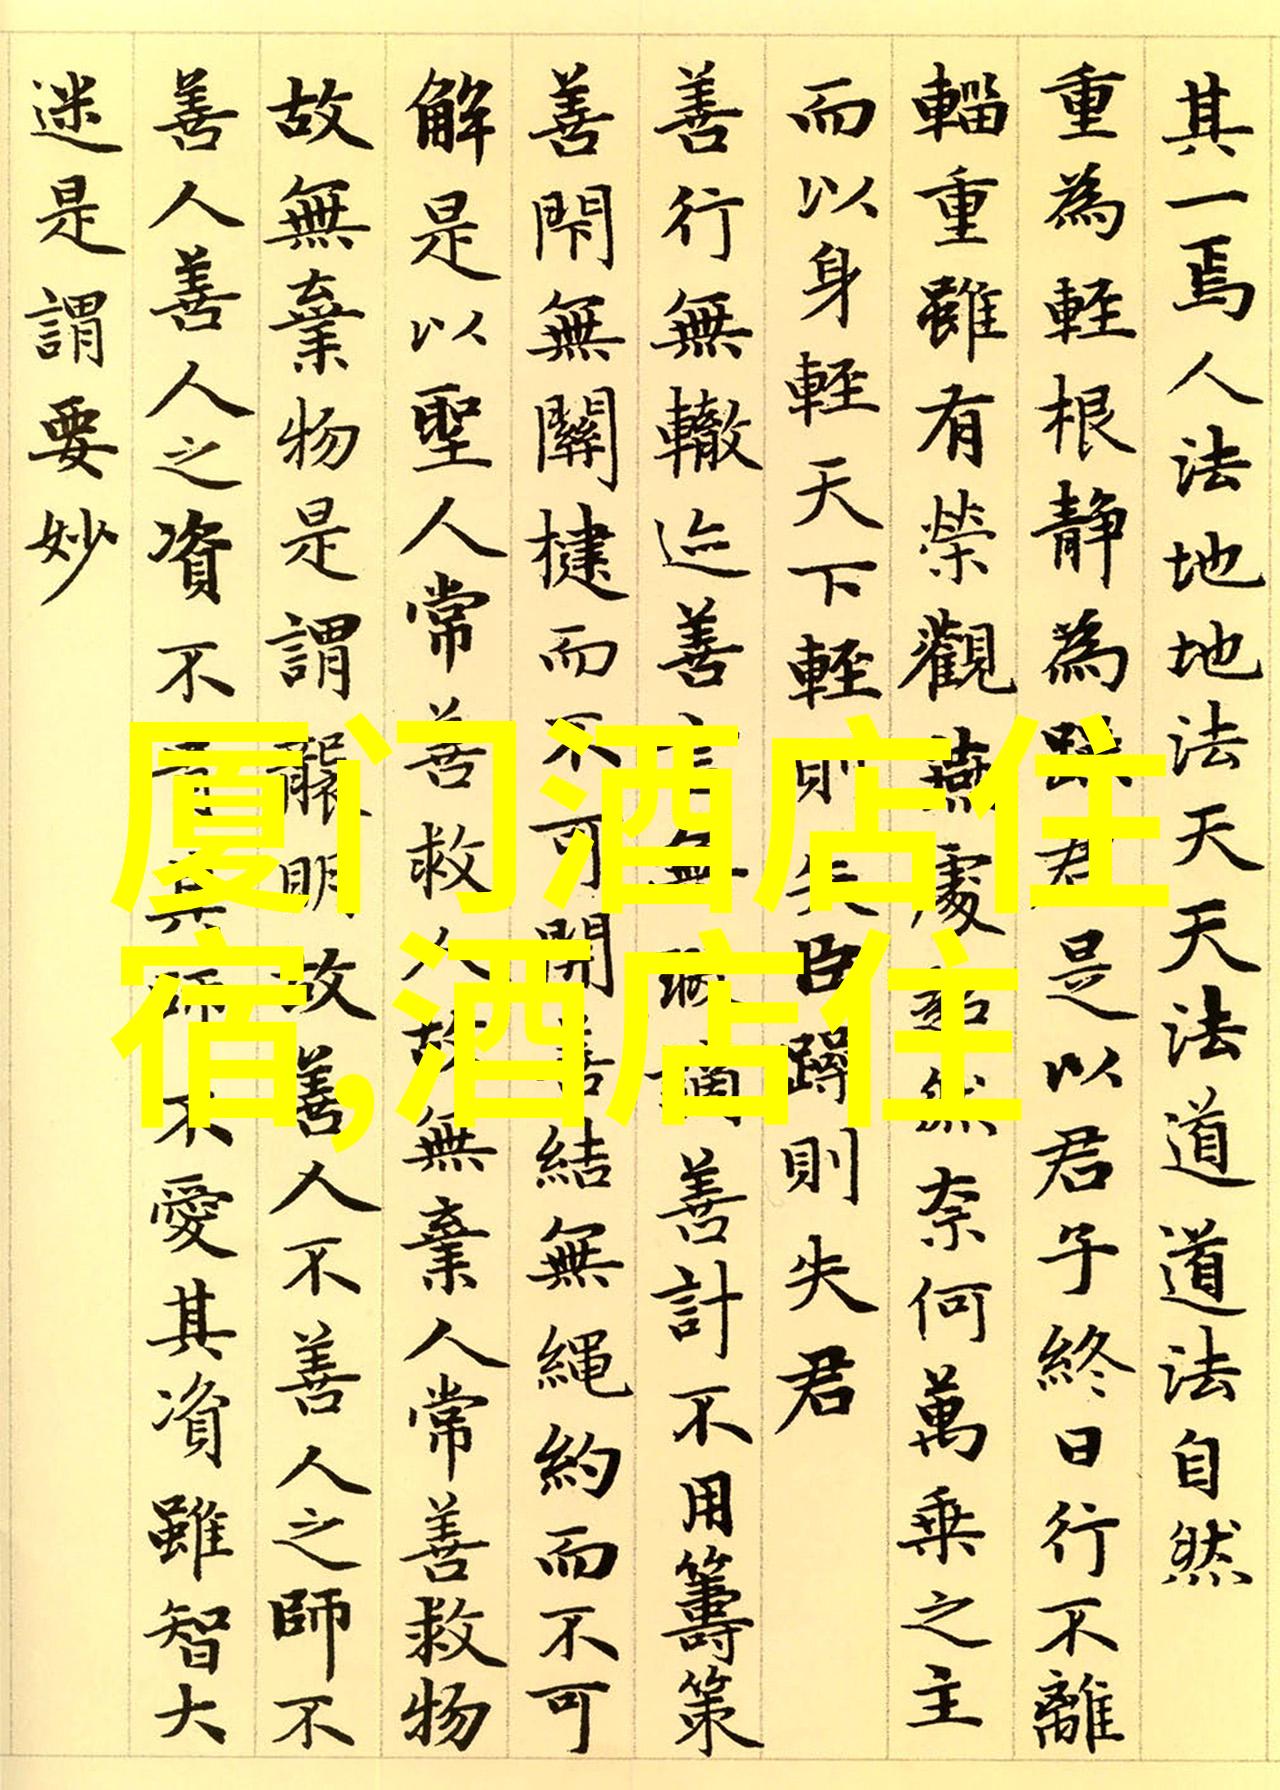 其一焉人法地地法天天法道道法自然
重為輕根静為躁君是以君子終日行不離
輜重雖有榮觀燕處超然奈何萬乗之主
而以身輕天下輕則失臣躁則失君
善行無轍迹善言無瑕謫善計不用籌策
善閇無關楗而不可開善結無繩約而不可
解是以聖人常善救人故無棄人常善救物
故無棄物是謂襲明故善人不善人之師不
善人善人之資不貴其師不愛其資雖智大
迷是謂要妙
厦门酒店住
宿,酒店住